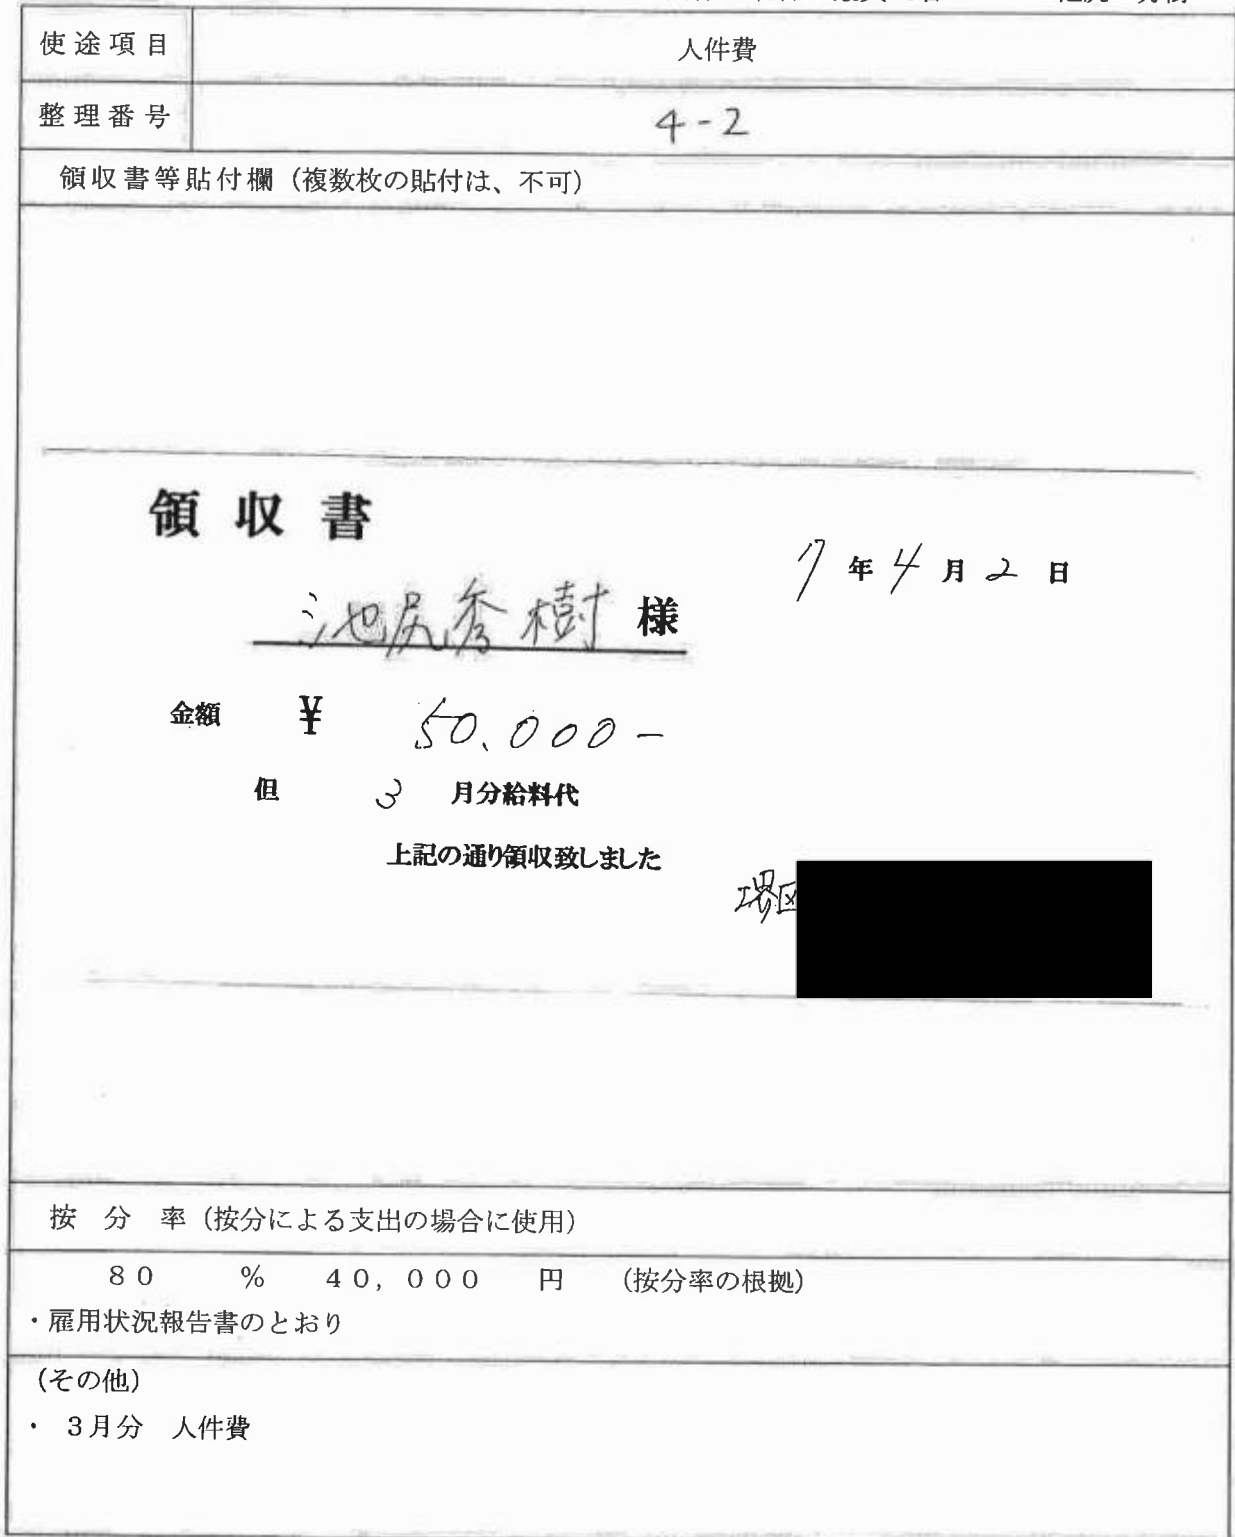 使途項目 人件費
整理番号 4-2
領収書等貼付欄（複数枚の貼付は、不可）
領収書
7年4月2日
池尻秀樹様
金額 ¥ 50.000-
但 3月分給料代
上記の通り領収致しました
堺区
按分率（按分による支出の場合に使用）
80 % 40,000 円 （按分率の根拠）
・雇用状況報告書のとおり
（その他）
・ 3月分 人件費